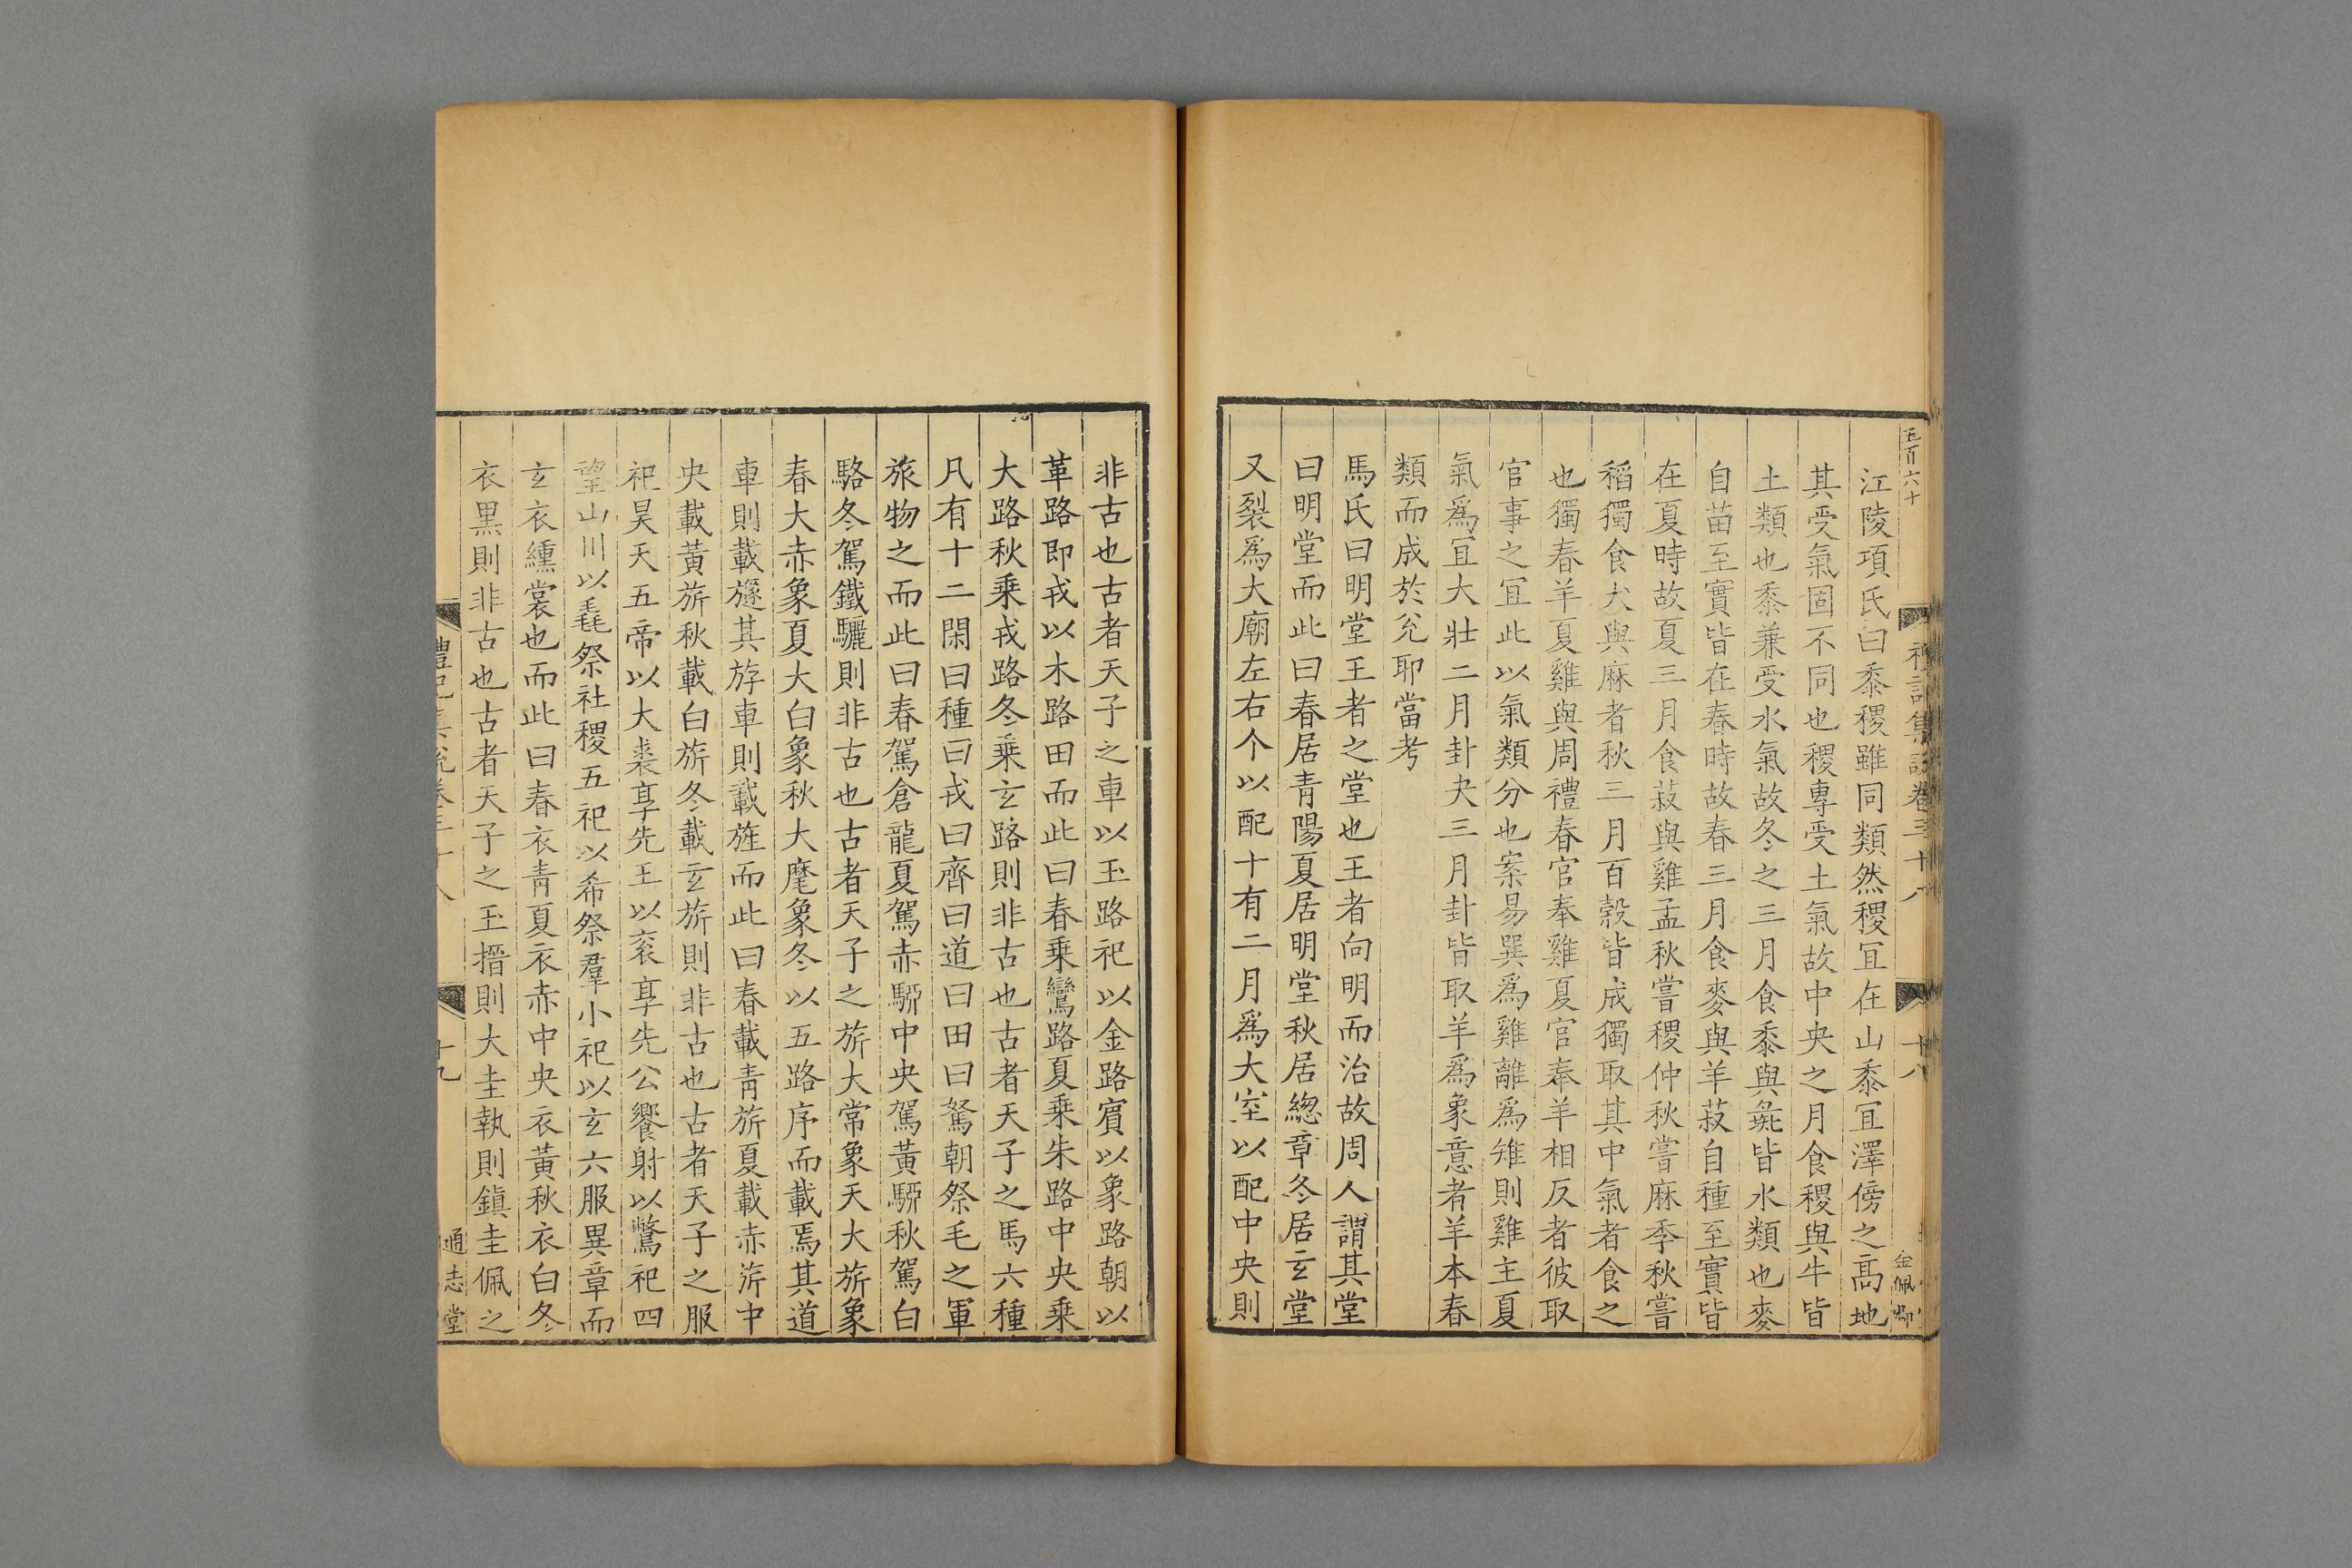 五百六十
禮記集說卷三十八
十八
金佩卿
江陵項氏曰黍稷雖同類然稷宜在山黍宜澤傍之高地
其受氣固不同也稷專受土氣故中央之月食稷與牛皆
土類也黍兼受水氣故冬之三月食黍與彘皆水類也麥
自苗至實皆在春時故春三月食麥與羊菽自種至實皆
在夏時故夏三月食菽與雞孟秋嘗稷仲秋嘗麻季秋嘗
稻獨食犬與麻者秋三月百穀皆成獨取其中氣者食之
也獨春羊夏雞與周禮春官奉雞夏官奉羊相反者彼取
官事之宜此以氣類分也案易巽為雞離為雉則雞主夏
氣為宜大壯二月卦夬三月卦皆取羊為象意者羊本春
類而成於兊耶當考
馬氏曰明堂王者之堂也王者向明而治故周人謂其堂
曰明堂而此曰春居青陽夏居明堂秋居緫章冬居玄堂
又裂為大廟左右个以配十有二月為大室以配中央則
非古也古者天子之車以玉路祀以金路賓以象路朝以
革路即戎以木路田而此曰春乗鸞路夏乗朱路中央乗
大路秋乗戎路冬乗玄路則非古也古者天子之馬六種
凡有十二閑曰種曰戎曰齊曰道曰田曰駑朝祭毛之軍
旅物之而此曰春駕倉龍夏駕赤騵中央駕黃騵秋駕白
駱冬駕鐵驪則非古也古者天子之旂大常象天大旂象
春大赤象夏大白象秋大麾象冬以五路序而載焉其道
車則載旞其斿車則載旌而此曰春載青旂夏載赤旂中
央載黃旂秋載白旂冬載玄旂則非古也古者天子之服
祀昊天五帝以大裘享先王以衮享先公饗射以鷩祀四
望山川以毳祭社稷五祀以希祭羣小祀以玄六服異章而
玄衣纁裳也而此曰春衣青夏衣赤中央衣黃秋衣白冬
衣黑則非古也古者天子之玉搢則大圭執則鎮圭佩之
禮記集說卷三十八
十九
通志堂